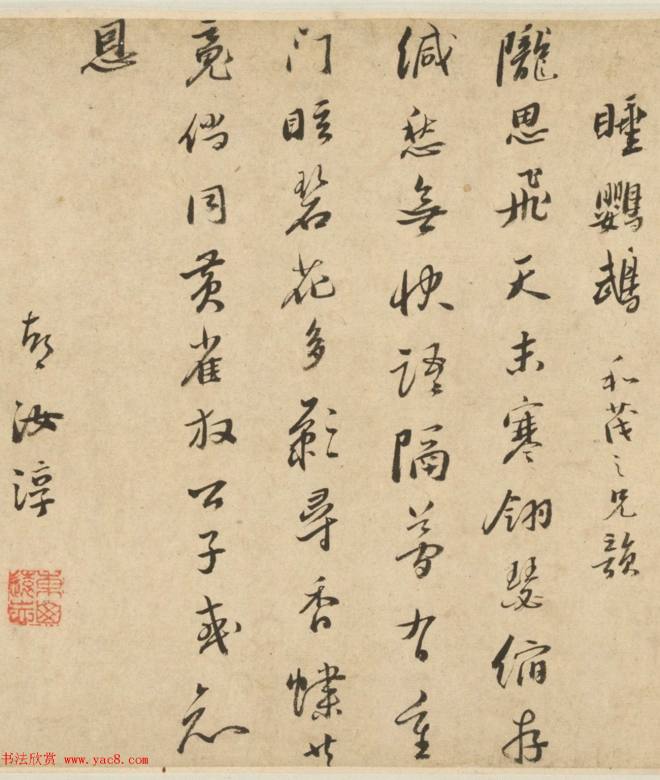 睡鸚鵡 和茂之兄韻
隴思飛天末寒翎瑟縮存
緘愁無快語隔夢有重
門眩碧花多影尋香蝶共
倘同黃雀放公子或忘
恩
胡汝淳
书法欣赏 www.yac8.com